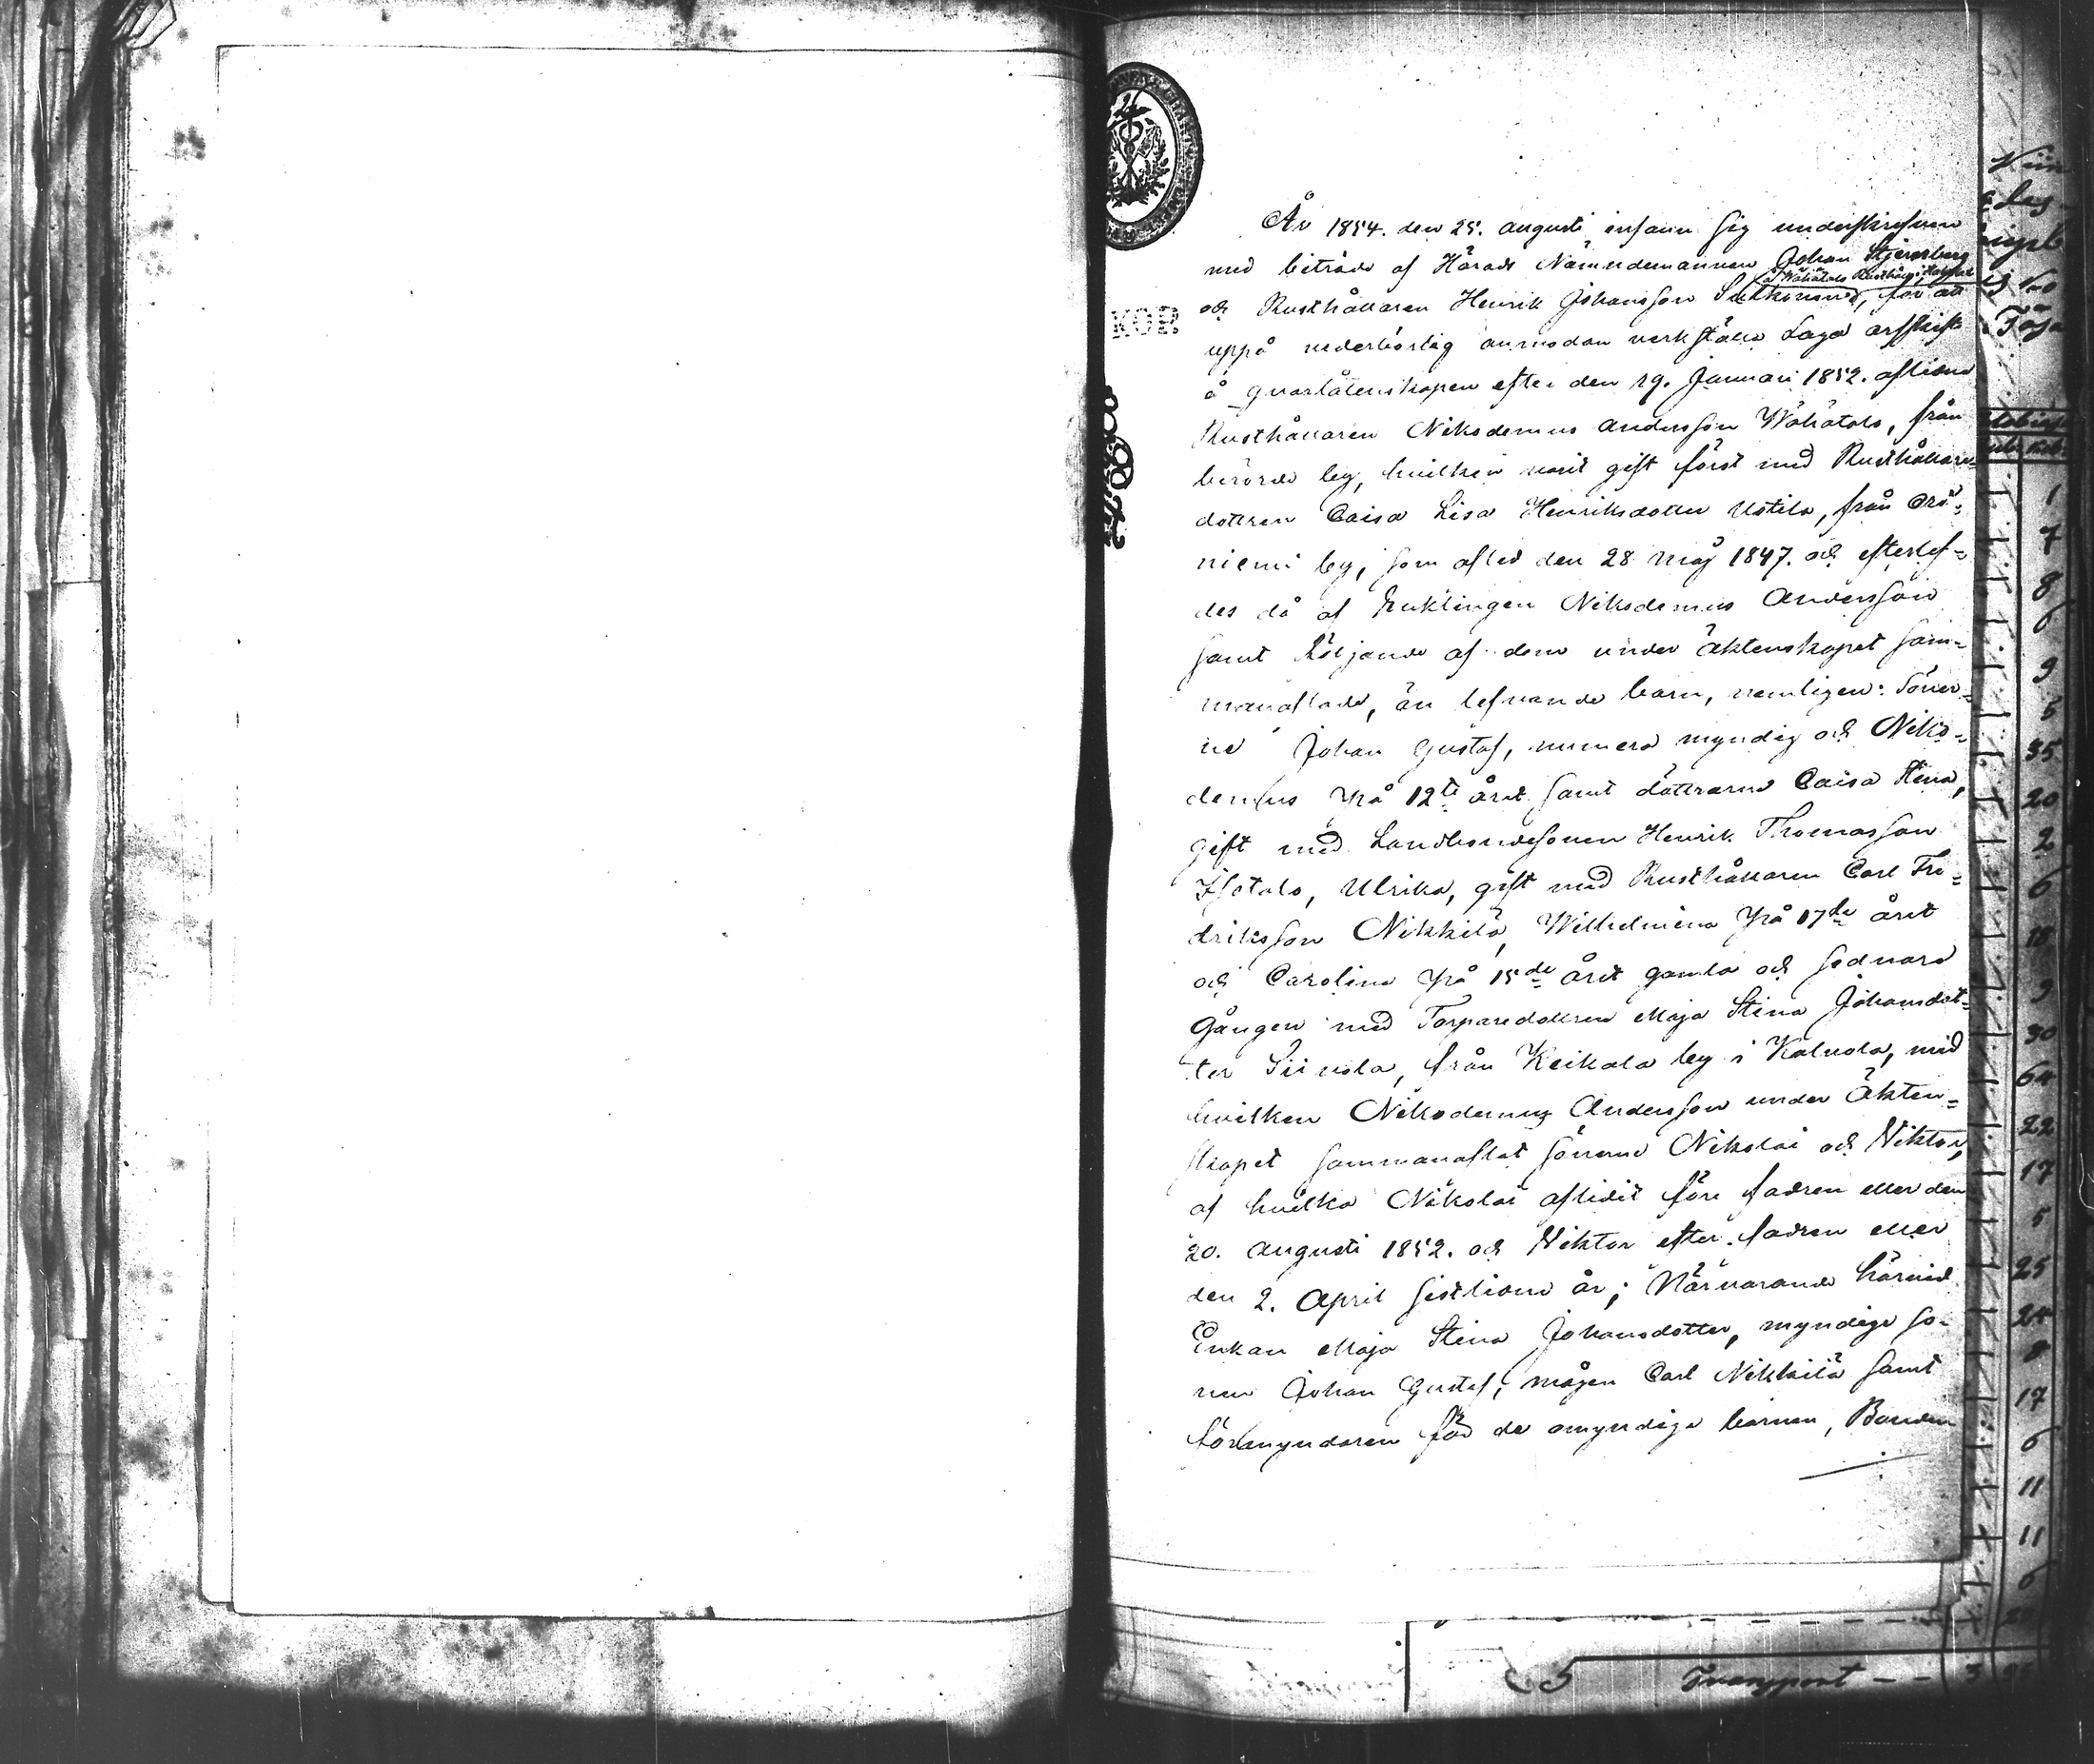 År 1854. den 25. augusti infann sig underskrefven
med biträde af Härads Nämndemannen Johan Stjernberg
i Wähätalo Rusthåll i
och Rusthållaren Henrik Johansson, för att
uppå vederbörlig anmodan verkställa Laga arfskifte
å qvarlåtenskapen efter den 19. Januari 1852. aflidne
Rusthållaren Nikodemus Andersson Wähätalo, från
berörde by, hvilken varit gift först med Rusthållare
dottren Caisa Lisa Henriksdotter Ustila, från Orö-
niemi by, som afled den 28 Maj 1847. och efterlef-
des då af Enklingen Nikodemus Andersson
samt följande af dem under äktenskapet sam-
manaflade, än lefvande barn, nemligen: Söner-
ne Johan Gustaf, numera myndig och Niko-
demus på 12te året samt döttrarne Caisa Stina,
gift med Landbondesonen Henrik Thomasson
Isotalo, Ulrika, gift med Rusthållaren Carl Fre-
driksson Nikkilä, Wilhelmina på 17de året
och Carolina på 15de året gamla och sednare
Gången med Torparedottren Maja Stina Johansdot-
ter Siivola, från Keikala by i Kalvola, med
hvilken Nikodemus Andersson under Äkten-
skapet sammanaflat sönerne Nikolai och Viktor,
af hvilka Nikolai aflidit före fadren eller den
20. Augusti 1852. och Viktor efter fadren eller
den 2. April sistlidne år; Närvarande härvid
Enkan Maja Stina Johansdotter, myndige so-
nen Johan Gustaf, mågen Carl Nikkilä samt
förmyndaren för de omyndige barnen, Bonden
KOP
1
7
8
6
9
5
35
20
2
6
18
9
30
64
22
17
5
25
24
8
17
6
11
11
6
Transport - -